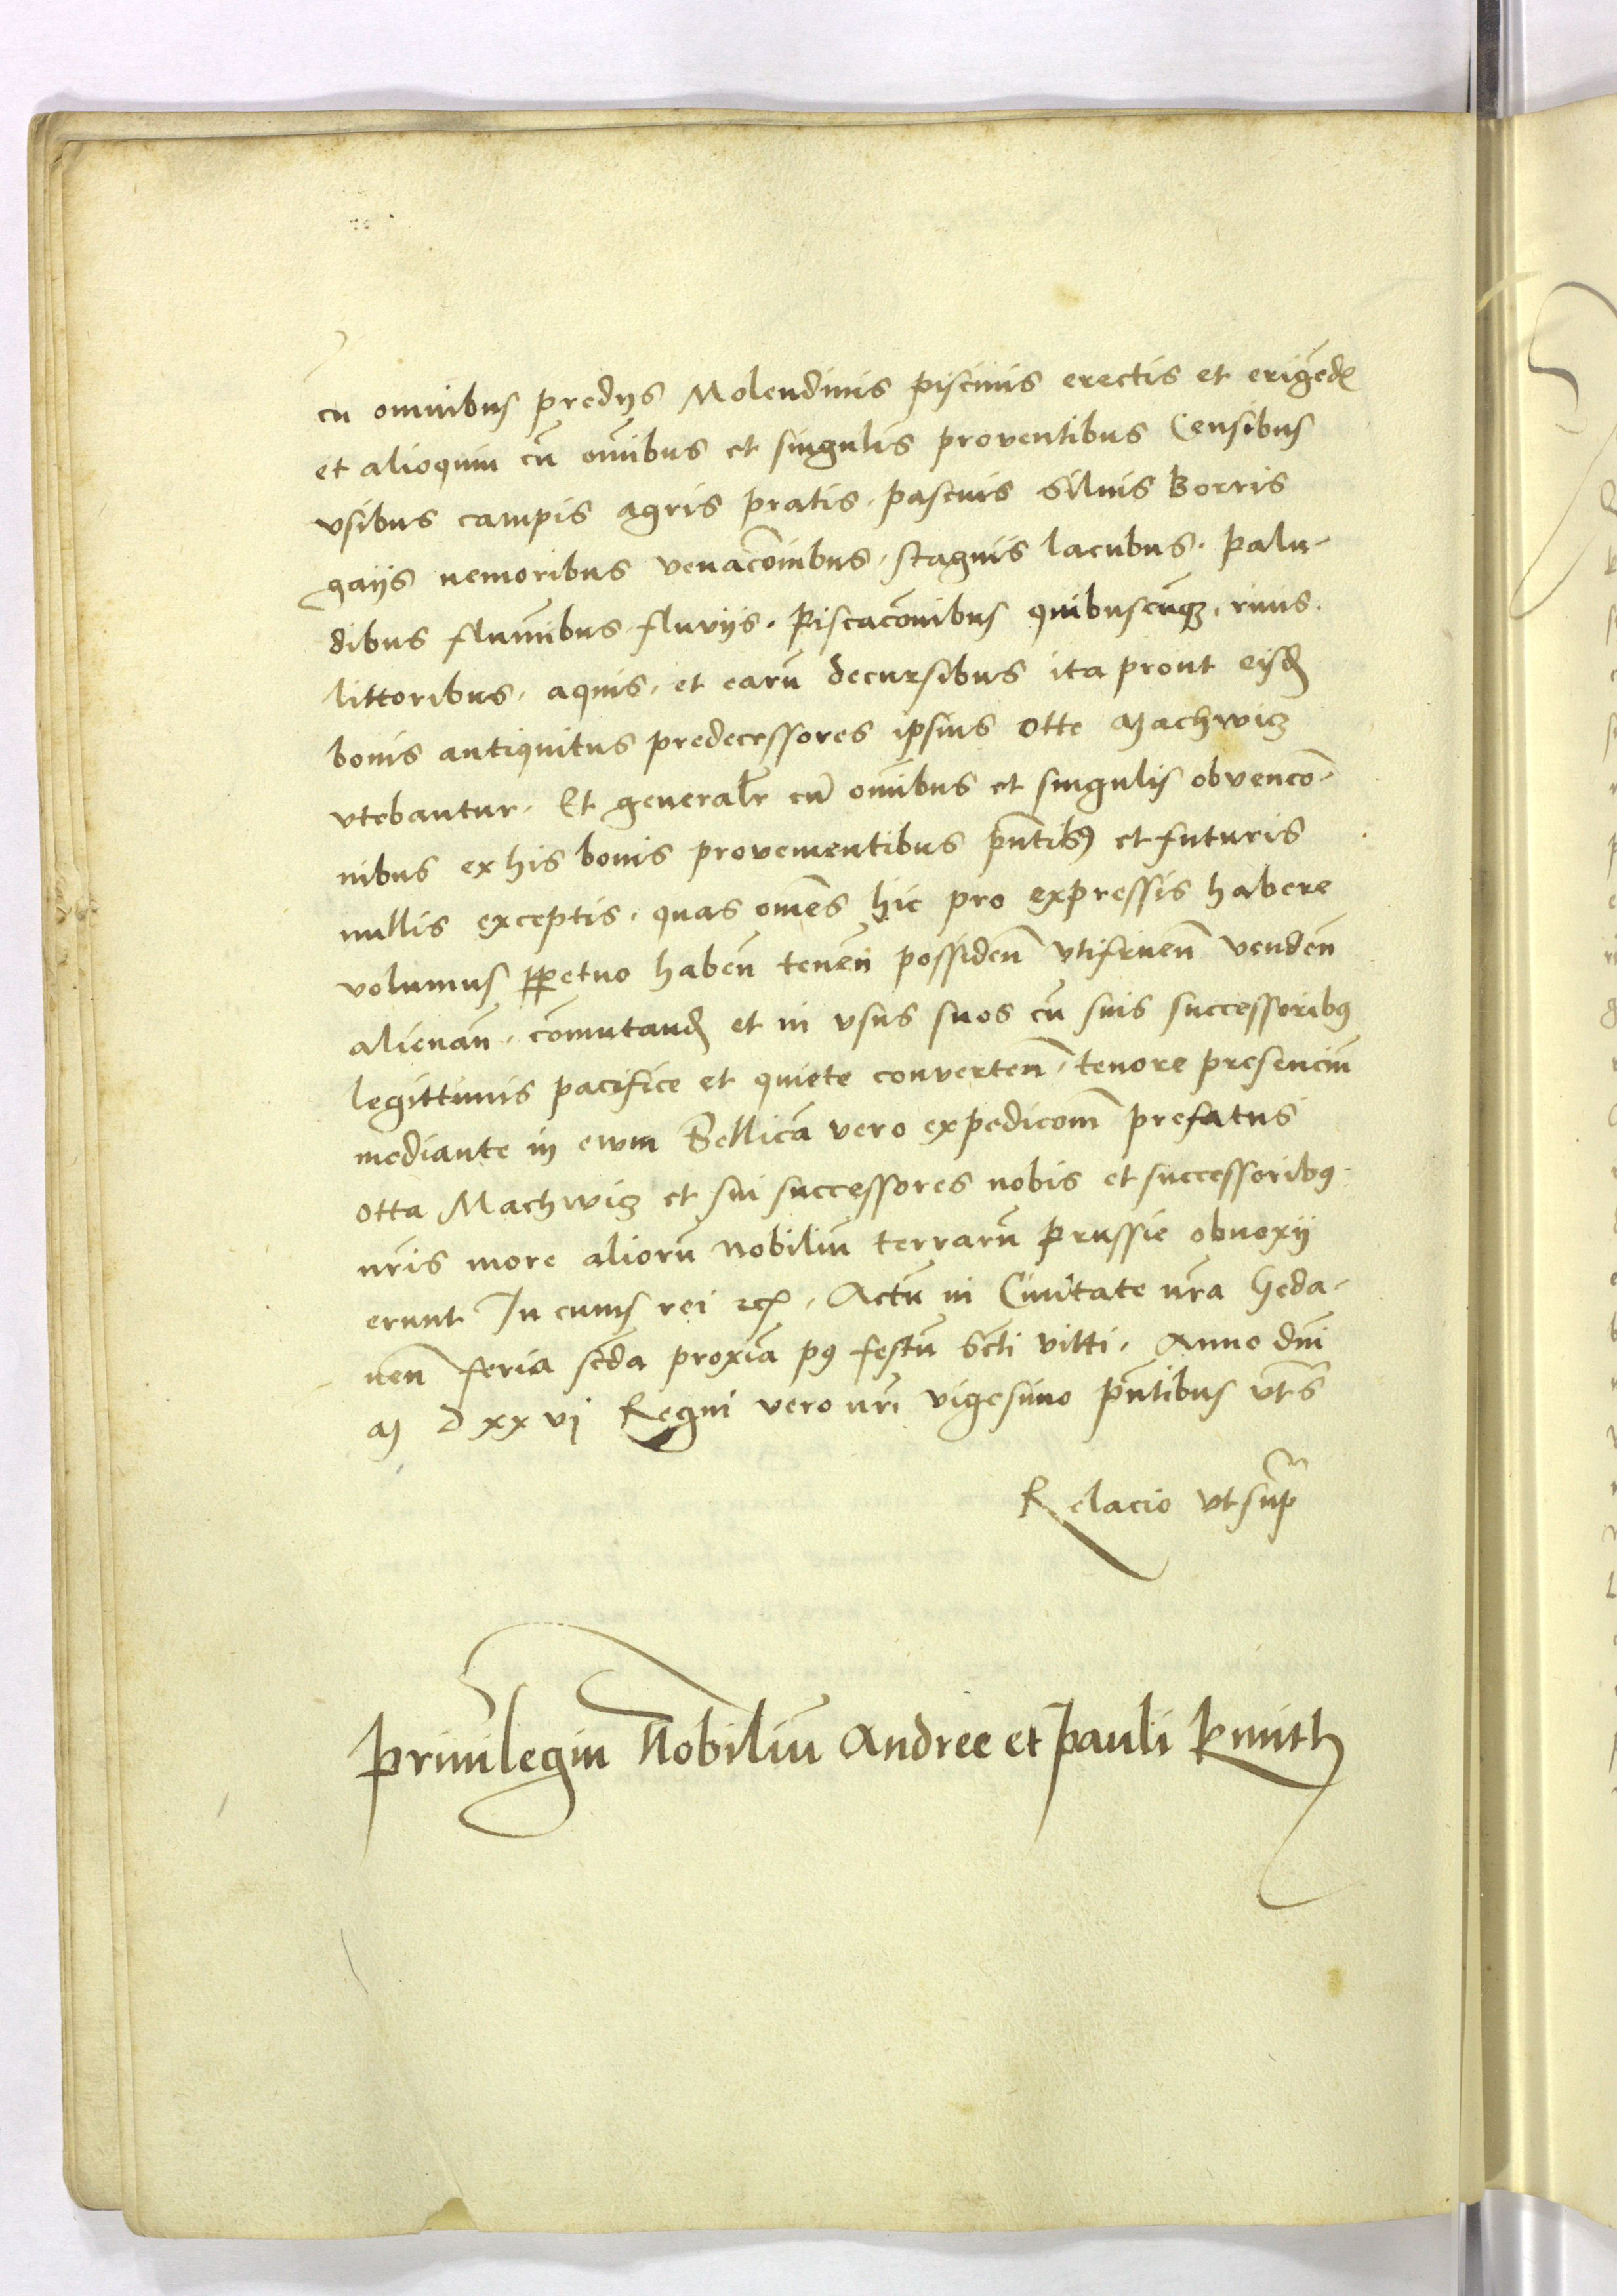 cū omnibus predys Molendinis piscinis erectis et erigēd
et alioquin cū om̄ibus et singulis proventibus Censibus
vsibus campis agris pratis. pascuis Siluis Borris
gayis nemoribus venac̄onibus. stagnis lacubus. palu-
dibus flum̄ibus fluvijs. Piscac̄onibus quibuscūqȝ. riuis.
littoribus. aquis. et earū decursibus ita prout eisd
bonis antiquitus predecessores ipsius Otte Machwicz
vtebantur. Et generalr̄ cū om̄ibus et singulis obvenc̄o-
nibus ex his bonis provenientibus pn̄tibꝯ et futuris
nullis exceptis. quas om̄es hic pro expressis habere
volumus ꝑpetuo haben̄ tenen̄ possiden̄ vtifruen̄ venden̄
alienan̄. com̄utand et in vsus suos cū suis successoribꝯ
legittimis pacifice et quiete converten̄. tenore presenciū
mediante in ewm Bellicā vero expedicōm prefatus
Otta Machwicz et sui successores nobis et successoribꝯ
nr̄is more aliorū Nobiliū terrarū Prussie obnoxij
erunt In cuius rei rc. Actū in Ciuitate nr̄a Geda-
nen̄ feria sc̄da proxīa pꝯ festū Sc̄ti Vitti. Anno dn̄i
M D xx vj Regni vero nr̄i vigesimo pn̄tibus vt s̄
Relacio vt sup̄
Priuilegiū Nobiliū Andree et Pauli Kmith